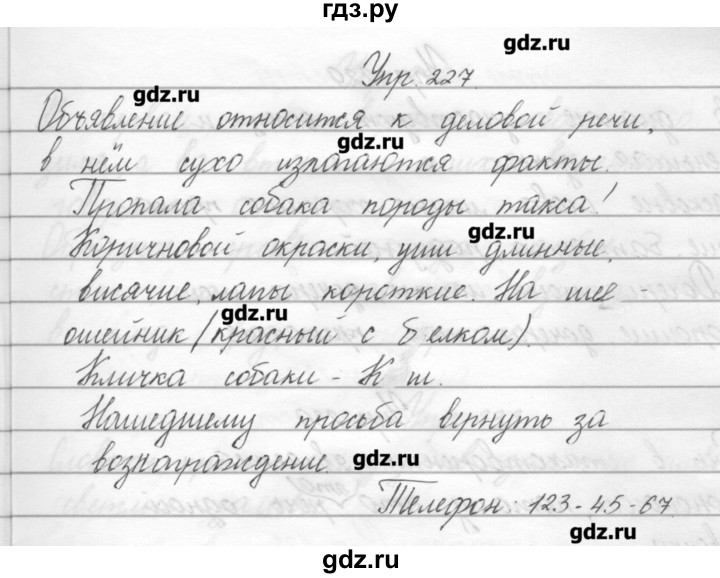 гдз.ру
gdz.ru
Упр. 227.
gdz.ru
Объявление относится к деловой речи,
gdz.ru
в нём сухо излагаются факты.
Пропала собака породы такса!
gdz.ru
Коричновой окраски, уши длинные,
висячие, лапы короткие. На шее -
gdz.ru
ошейник (красный с белком).
Кличка собаки - К ш.
Нашедшему просьба вернуть за
вознаграждение
gdz.ru
Телефон: 123-45-67.
gdz.ru
gdz.ru